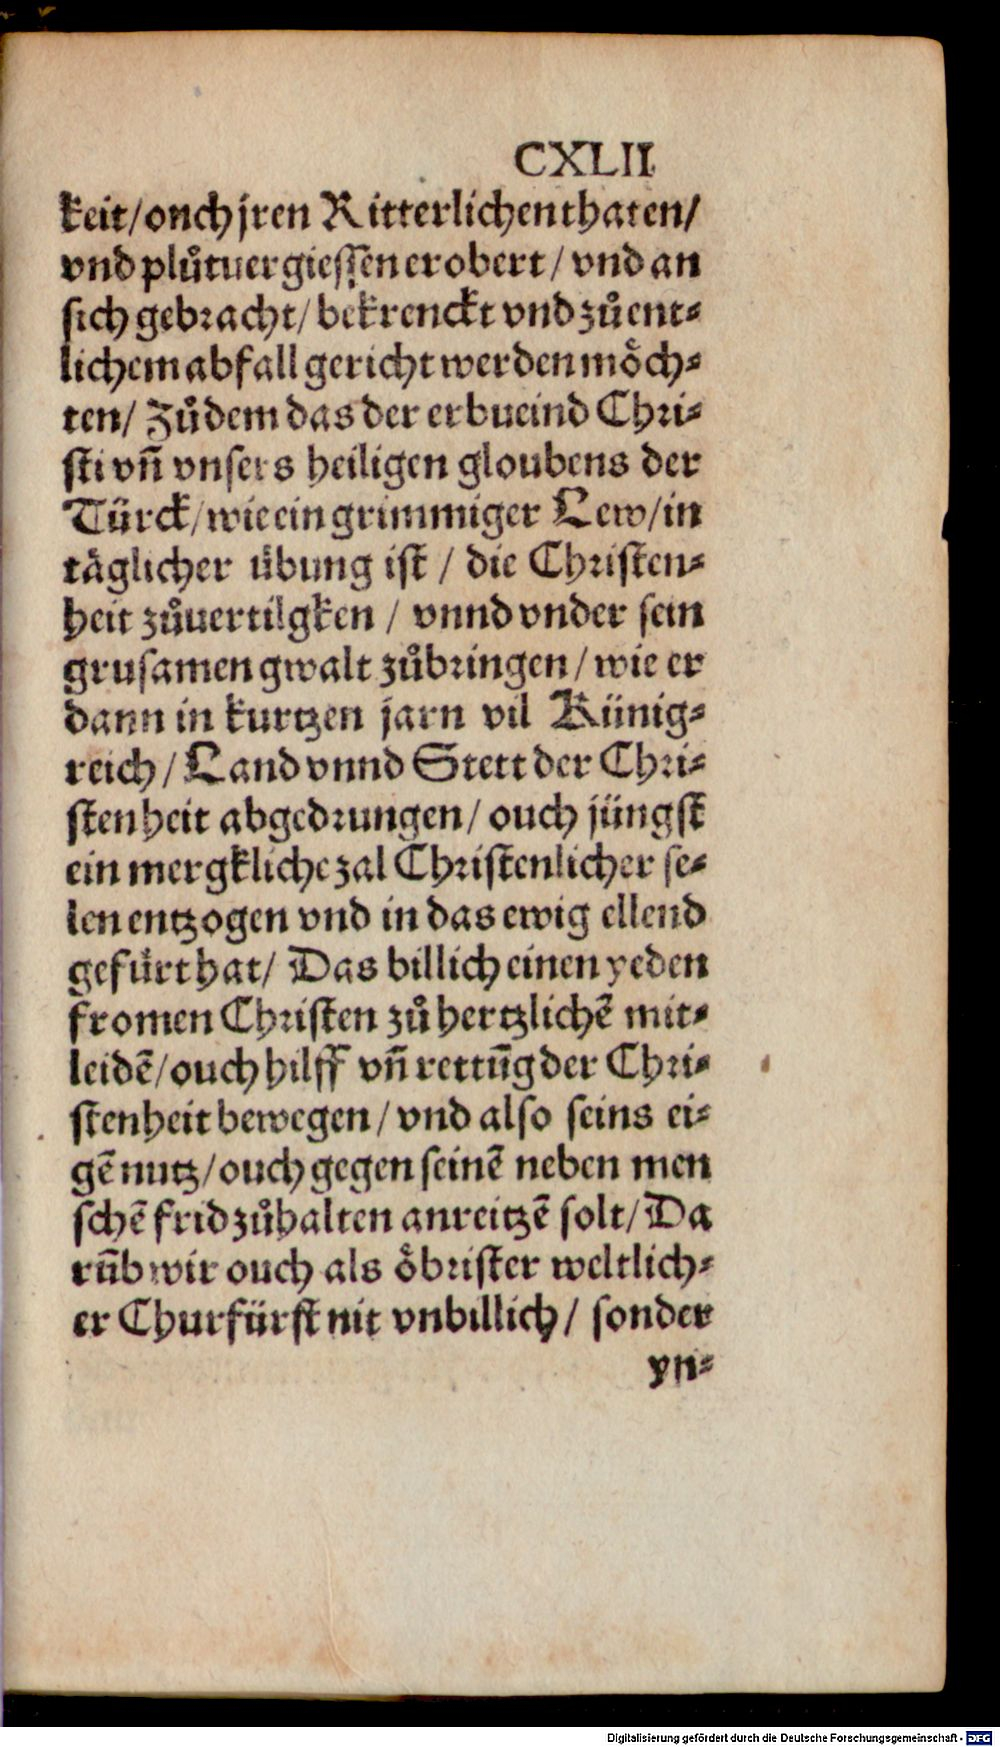 CXLII
keit/onch jren Ritterlichen thaten/
vnd plůtuergiessen erobert/vnd an
sich gebracht/bekrenckt vnd zůent⸗
lichem abfall gericht werden möch⸗
ten/Zůdem das der erbueind Chri⸗
sti vñ vnsers heiligen gloubens der
Türck/wie ein grimmiger Lew/in
täglicher übung ist / die Christen⸗
heit zůuertilgken / vnnd vnder sein
grusamen gwalt zůbringen/wie er
dann in kurtzen jarn vil Künig⸗
reich/Land vnnd Stett der Chri⸗
stenheit abgedrungen/ouch jüngst
ein mergkliche zal Christenlicher se⸗
len entzogen vnd in das ewig ellend
gefürt hat/ Das billich einen yeden
fromen Christen zů hertzlichẽ mit⸗
leidẽ/ouch hilff vñ rettũg der Chri⸗
stenheit bewegen/vnd also seins ei⸗
gẽ nutz/ouch gegen seinẽ neben men
schẽ frid zůhalten anreitzẽ solt/Da
rũb wir ouch als öbrister weltlich⸗
er Churfürst nit vnbillich/ sonder
yn⸗
Digitalisierung gefördert durch die Deutsche Forschungsgemeinschaft - DFG